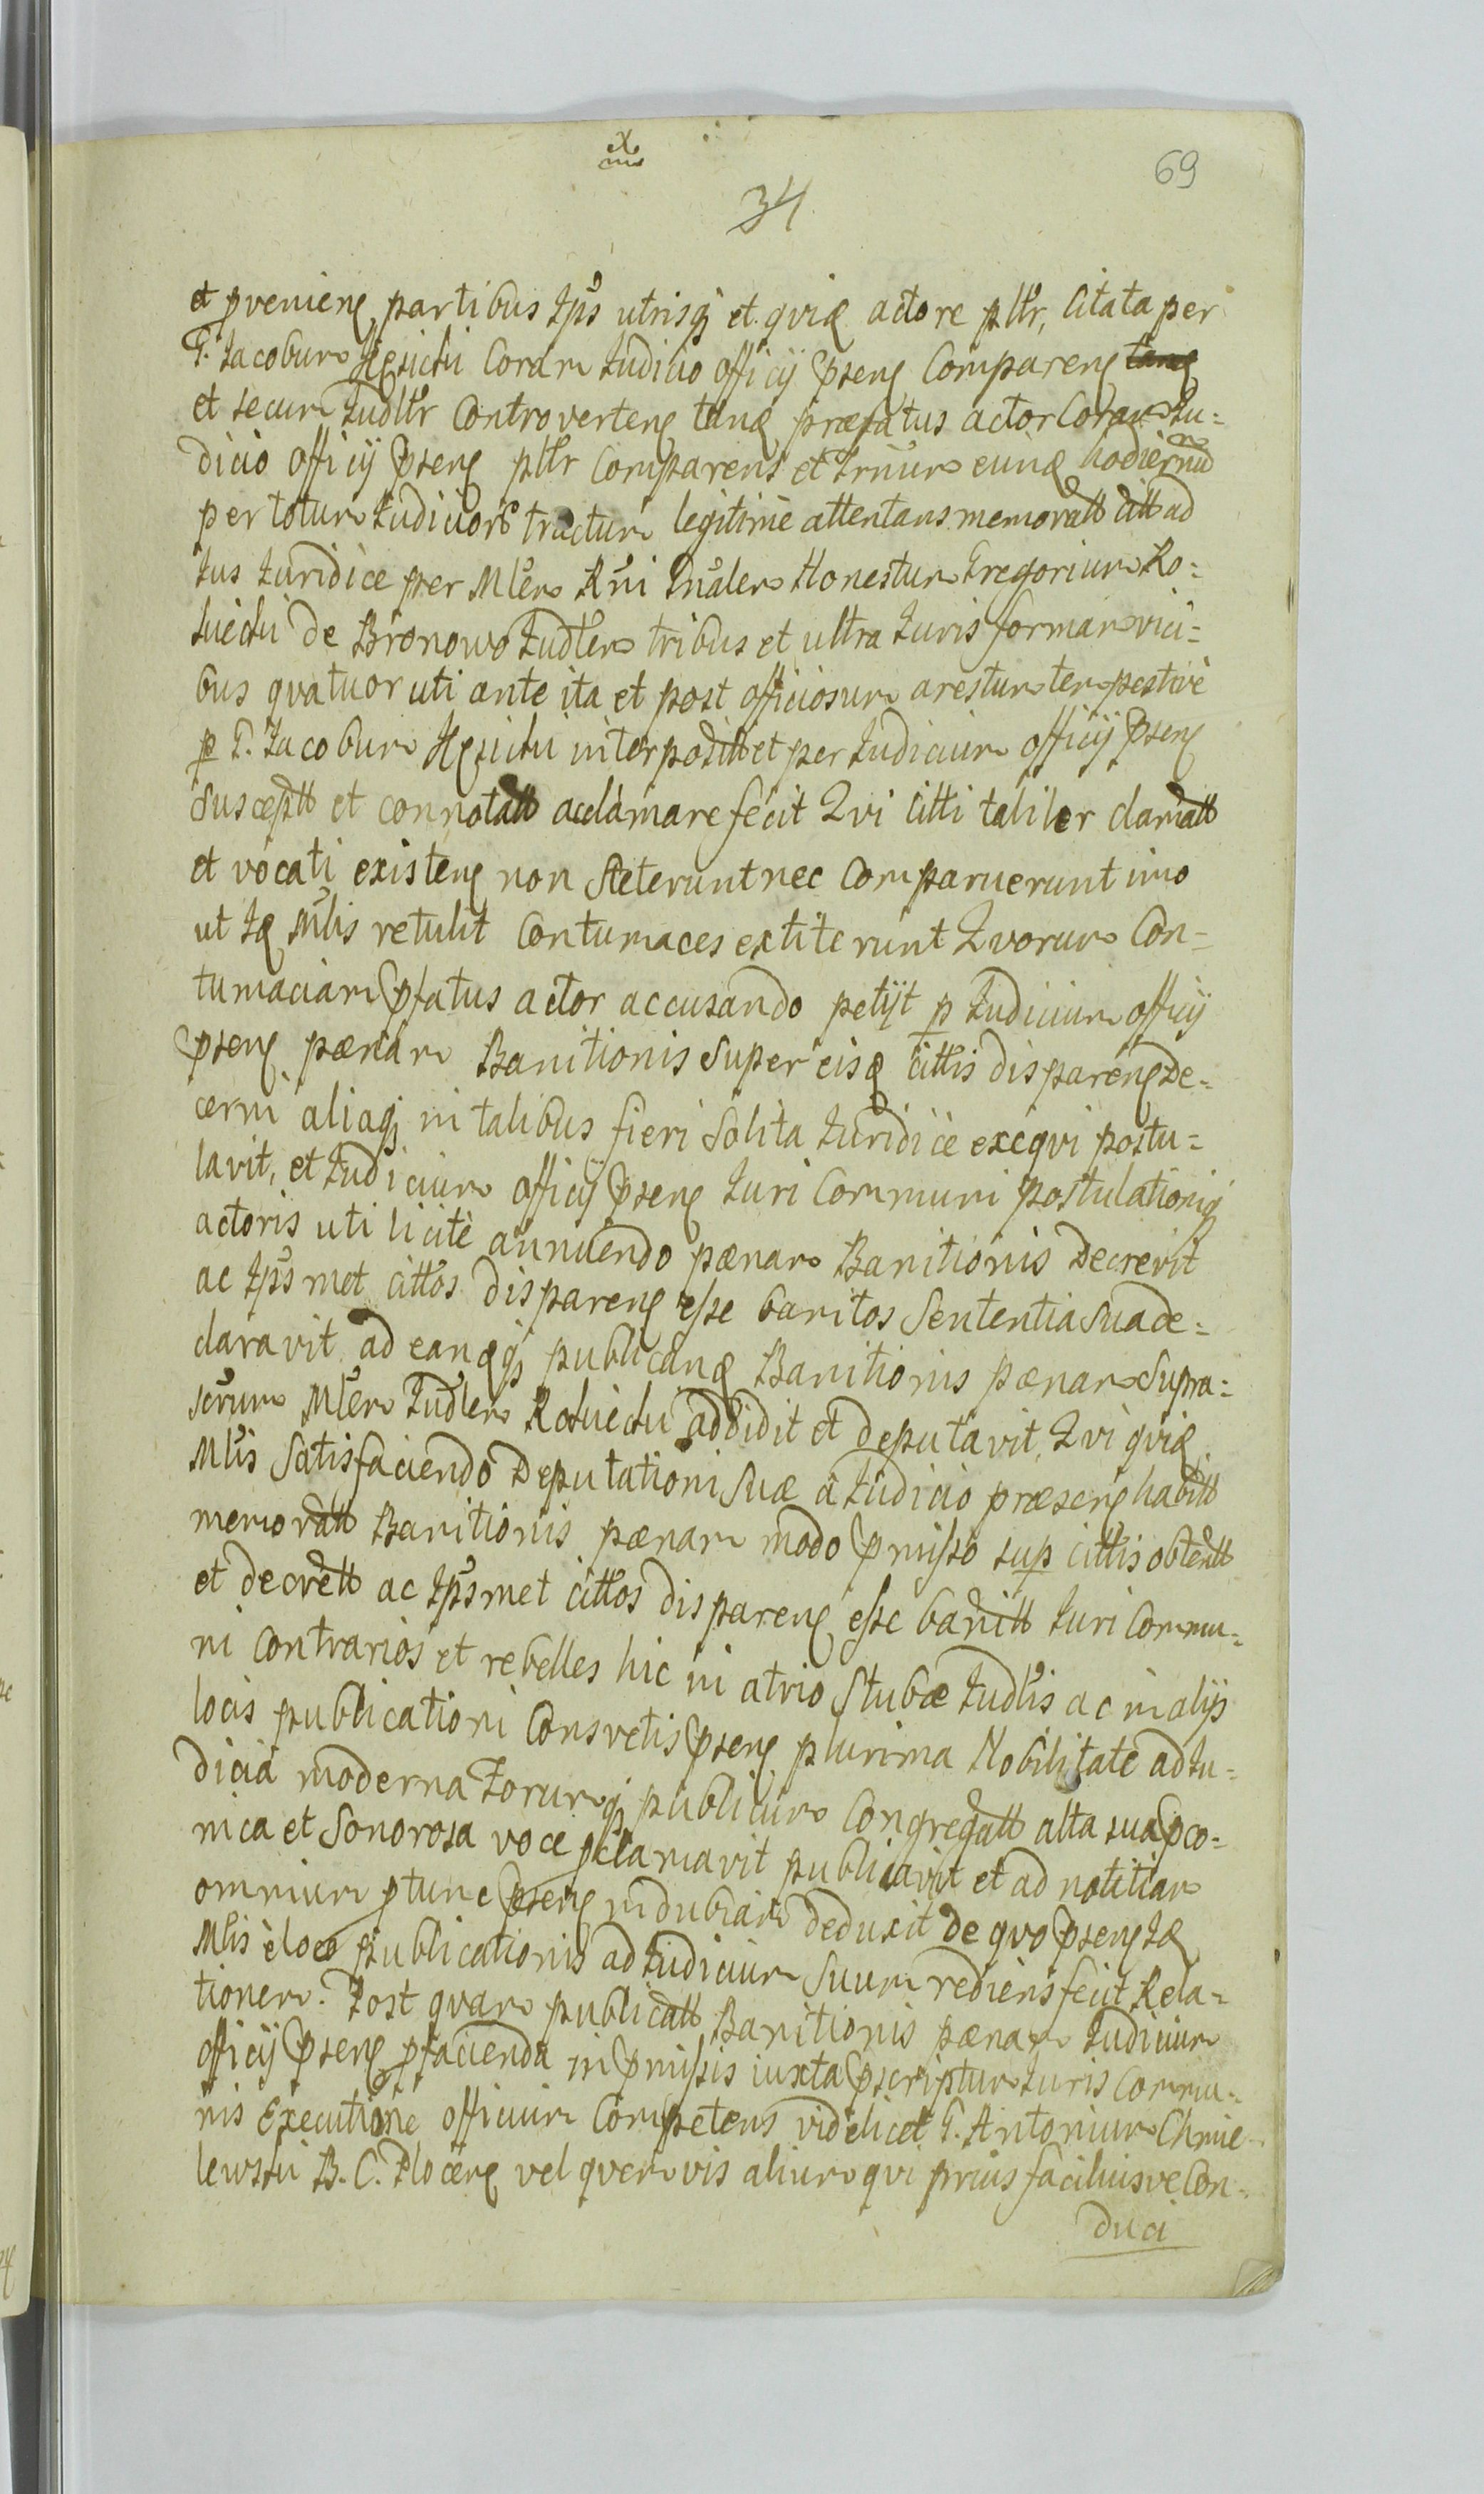 69
34
et pveniens partibus Ipīs utrisq, et quidē actore pltr, Citata per
G. Jacobum Coram Judicio officij pseng Compareng
et secum Judltr Controverteng tanq præfatus actor Coram Ju=
dicio officij pseng pltr Comparens et Trnum eunq hodiernu
per totum Judiciors tractum legitimè attentans memoratt citt ad
Jus Juridicè per Mlem Rni Gnalem Honestum Gregorium Ro=
de Bronowo Judlem tribus et ultra Juris formam vici=
bus qvatuor uti ante ita et post officiosum arestum tempestivè
p G. Jacobum interposittt et per Judicium officij pseng
susceptt et connotatt acclamare fecit Qvi citti taliter clamatt
et vocati existeng non steterunt nec Comparuerunt imo
ut Iq Mlis retulit Contumaces extiterunt Qvorum Con=
tumaciam pfatus actor accusando petijt p Judicium officij
pseng pœnam Banitionis super eisq cittis dispareng De=
cerni aliaq, in talibus fieri solita Juridicè exeqvi postu=
lavit, et Judicium officij pseng Juri Communi postulationiq,
actoris uti licitè annuendo pœnam Banitionis Decrevit
ac Ipīsmet cittos dispareng esse banitos Sententia sua de=
claravit ad eanqq, publicanq Banitionis pœnam supra=
scrum Mlem Judlem addidit et deputavit, Qvi qviq
Mlis Satisfaciendo Deputationi suæ â Judicio præseng habitt
memoratt Banitionis pœnam modo pmisso sup cittis obtentt
et decrett ac Ipīsmet cittos dispareng esse banitt Juri Commu=
ni Contrarios et rebelles hic in atrio Stubæ Judlis ac in alijs
locis publicationi Consvetis pseng plurima Nobilitate ad Ju=
dicia moderna Forumq, publicum Congregatt alta sua pco=
nica et sonorosa voce pclamavit publicavit et ad notitiam
omnium ptunc pseng indubiam deduxit de qvo pseng Iq
Mlis è loco publicationis ad Judicium suum rediens fecit Rela=
tionem. Post qvam publicatt Banitionis pœnam Judicium
officij pseng pfacienda in pmissis iuxta pscriptum Juris Commu=
nis Executione officium Competens videlicet G. Antonium Chmie=
lewski B. C. Ploceng vel qvemvis alium qvi prius faciliusve Con=
duci